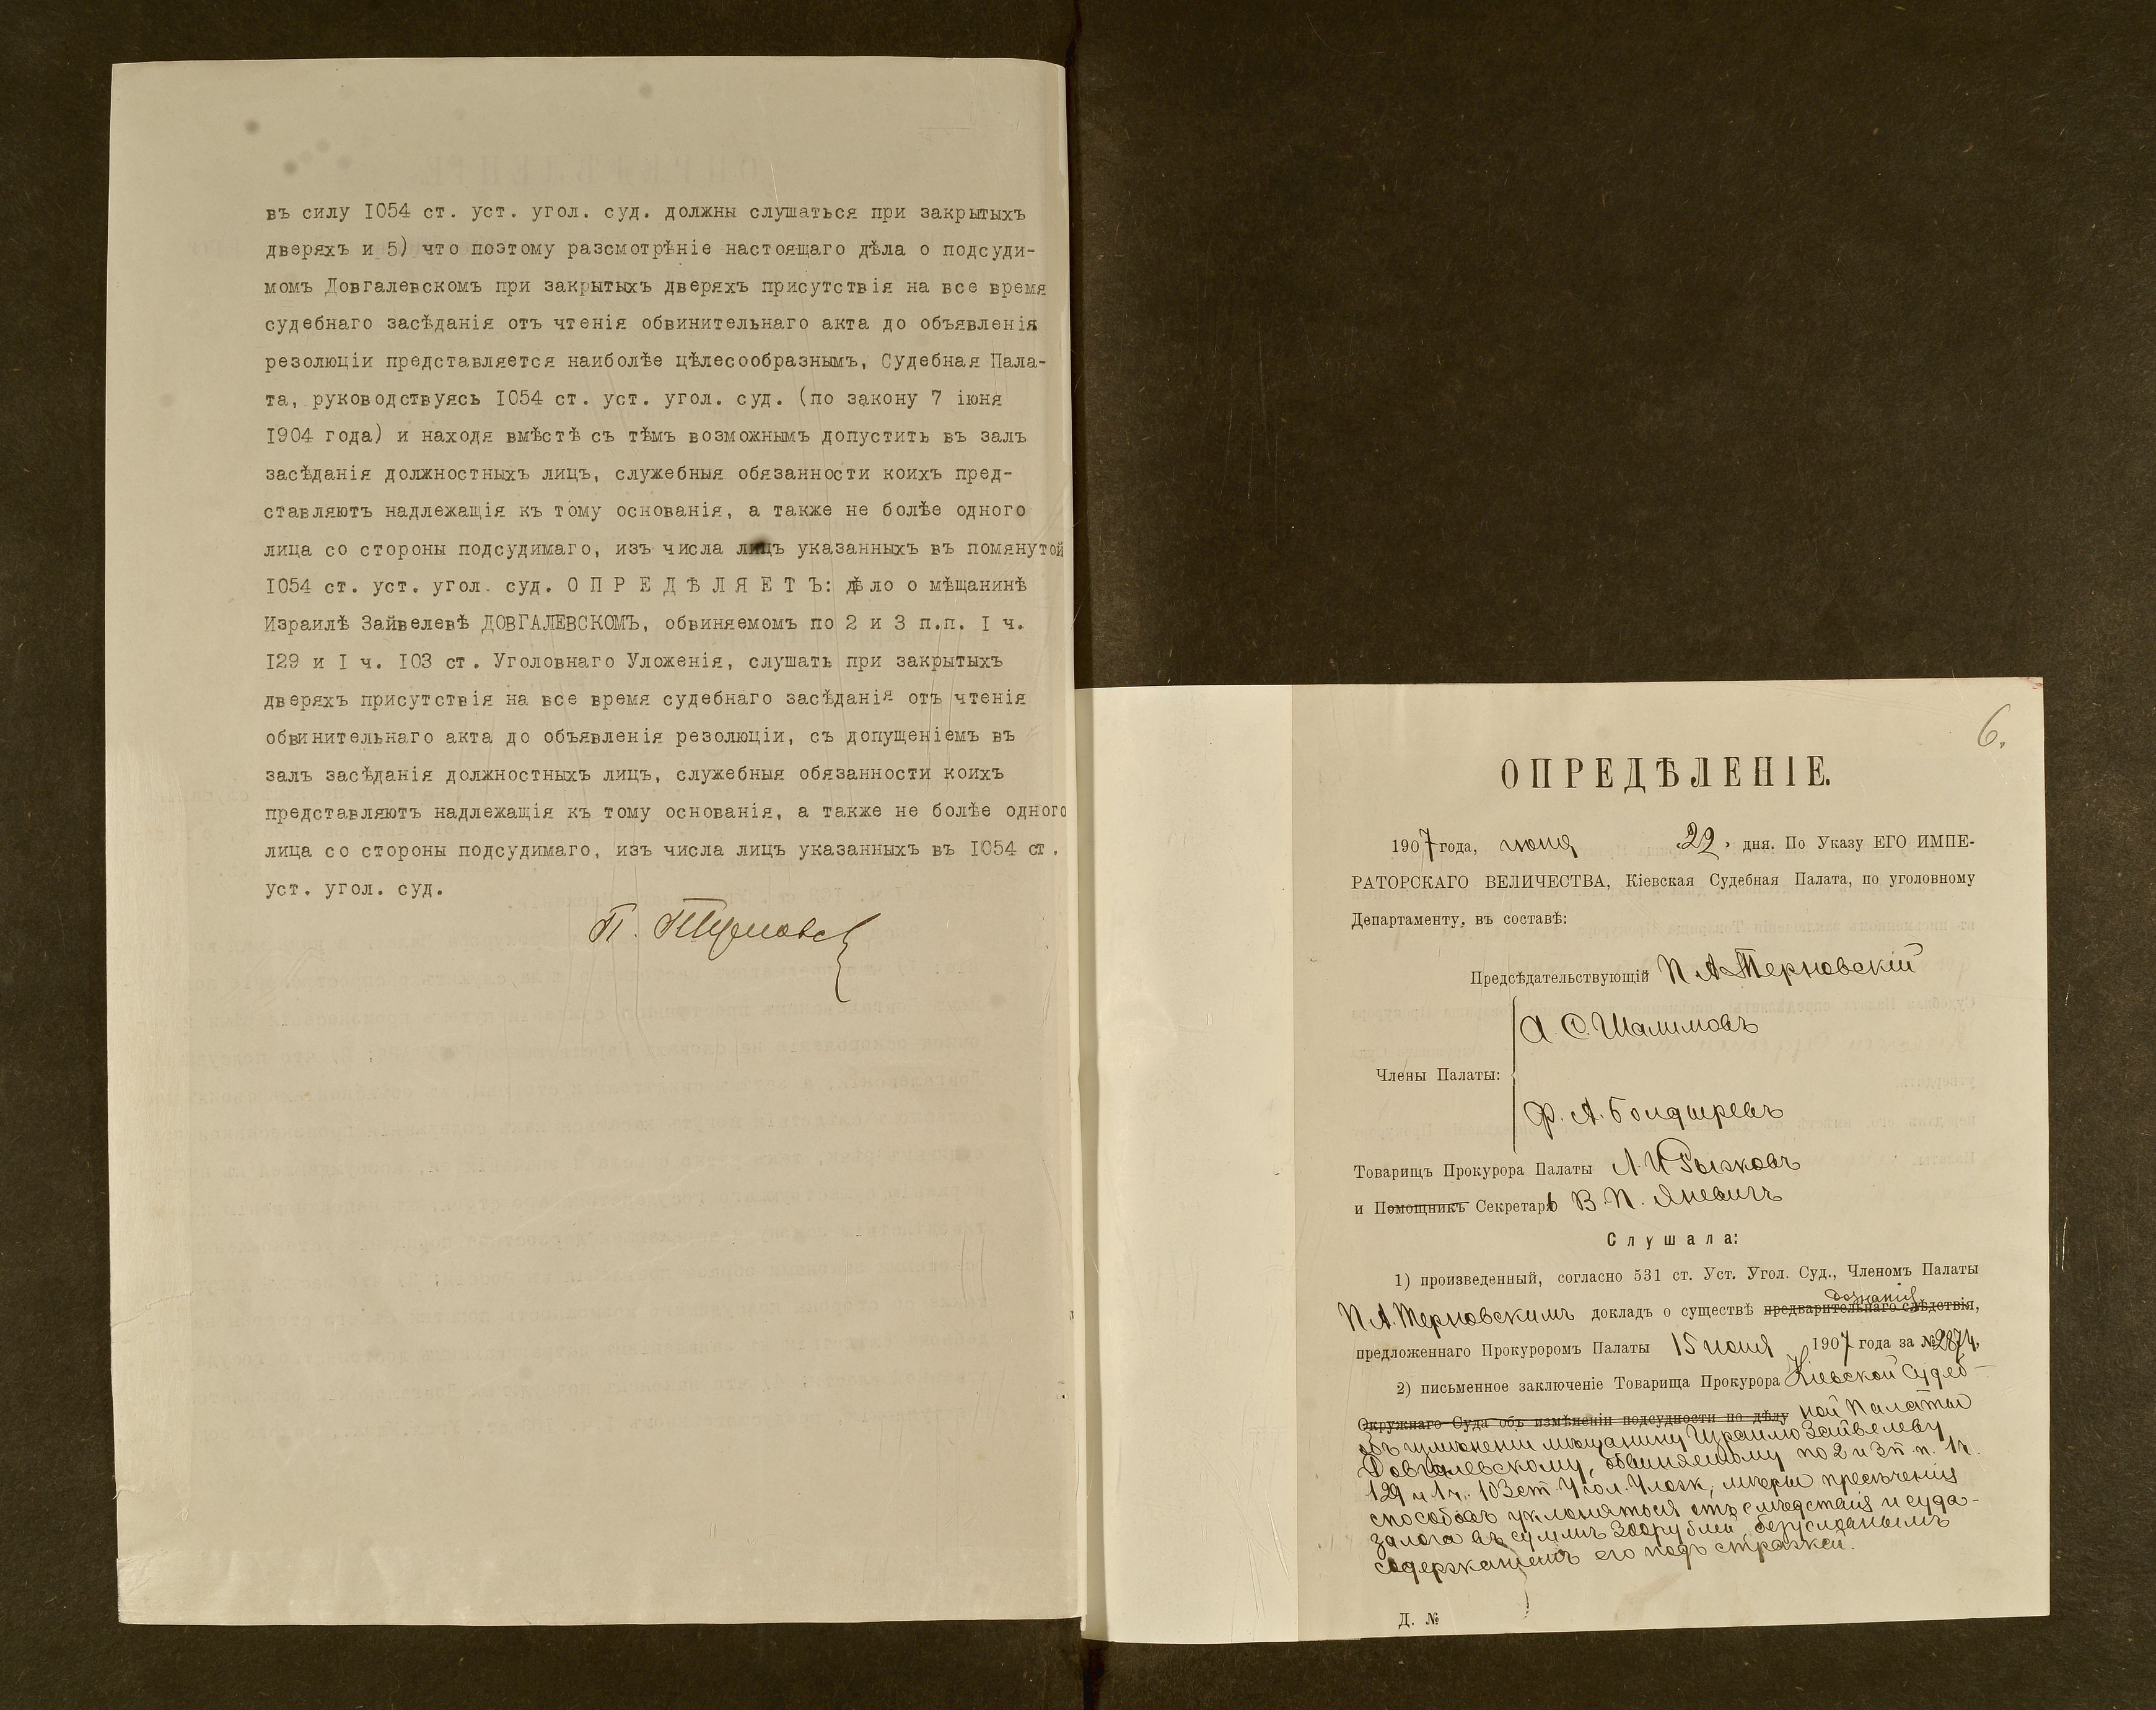 въ силу I054 ст. уст. угол. суд. должны слушаться при закрытыхъ
дверяхъ и 5) что поэтому разсмотрѣніе настоящаго дѣла о подсуди-
момъ Довгалевскомъ при закрытыхъ дверяхъ присутствія на все время
судебнаго засѣданія отъ чтенія обвинительнаго акта до объявленія
резолюціи представляется наиболѣе цѣлесообразнымъ, Судебная Пала-
та, руководствуясь I054 ст. уст. угол. суд. (по закону 7 іюня
I904 года) и находя вмѣстѣ съ тѣмъ возможнымъ допустить въ залъ
засѣданія должностныхъ лицъ, служебныя обязанности коихъ пред-
ставляютъ надлежащія къ тому основанія, а также не болѣе одного
лица со стороны подсудимаго, изъ числа лицъ указанныхъ въ помянутой
I054 ст. уст. угол. суд. О П Р Е Д Ѣ Л Я Е Т Ъ: дѣло о мѣщанинѣ
Израилѣ Зайвелевѣ ДОВГАЛЕВСКОМЪ, обвиняемомъ по 2 и 3 п.п. I ч.
I29 и I ч. I03 ст. Уголовнаго Уложенія, слушать при закрытыхъ
дверяхъ присутствія на все время судебнаго засѣданія отъ чтенія
обвинительнаго акта до объявленія резолюціи, съ допущеніемъ въ
залъ засѣданія должностныхъ лицъ, служебныя обязанности коихъ
представляютъ надлежащія къ тому основанія, а также не болѣе одного
лица со стороны подсудимаго, изъ числа лицъ указанныхъ въ I054 ст.
уст. угол. суд.
П.
6.
ОПРЕДѢЛЕНІЕ.
1907 года, июня 22, дня. По Указу ЕГО ИМПЕ-
РАТОРСКАГО ВЕЛИЧЕСТВА, Кіевская Судебная Палата, по уголовному
Департаменту, въ составѣ:
Предсѣдательствующій П. А. Терновскій
А. С. Шалимовъ
Члены Палаты:
Ф. А. Болдыревъ
Товарищъ Прокурора Палаты Л. И. Рызковъ
и Помощникъ Секретарь В. П. Яневичъ
Слушала:
1) произведенный, согласно 531 ст. Уст. Угол. Суд., Членомъ Палаты
дознанія
П. А. Терновскимъ докладъ о существѣ предварительнаго слѣдствія,
предложеннаго Прокуроромъ Палаты 15 июня 1907 года за № 2874,
2) письменное заключеніе Товарища Прокурора Кіевской Судеб-
Окружнаго Суда объ измѣненіи подсудности по дѣлу ной Палаты
объ измѣненіи мѣщанину Израилю Зайвелеву
Довгалевскому, обвиняемому по 2 и 3 п. п. 1 ч.
129 и 1 ч. 103 ст. Угол. Улож., мѣры пресѣченія
способовъ уклоняться отъ слѣдствія и суда -
залога въ суммѣ 300 рублей, безусловнымъ
содержаніемъ его подъ стражей.
Д. №